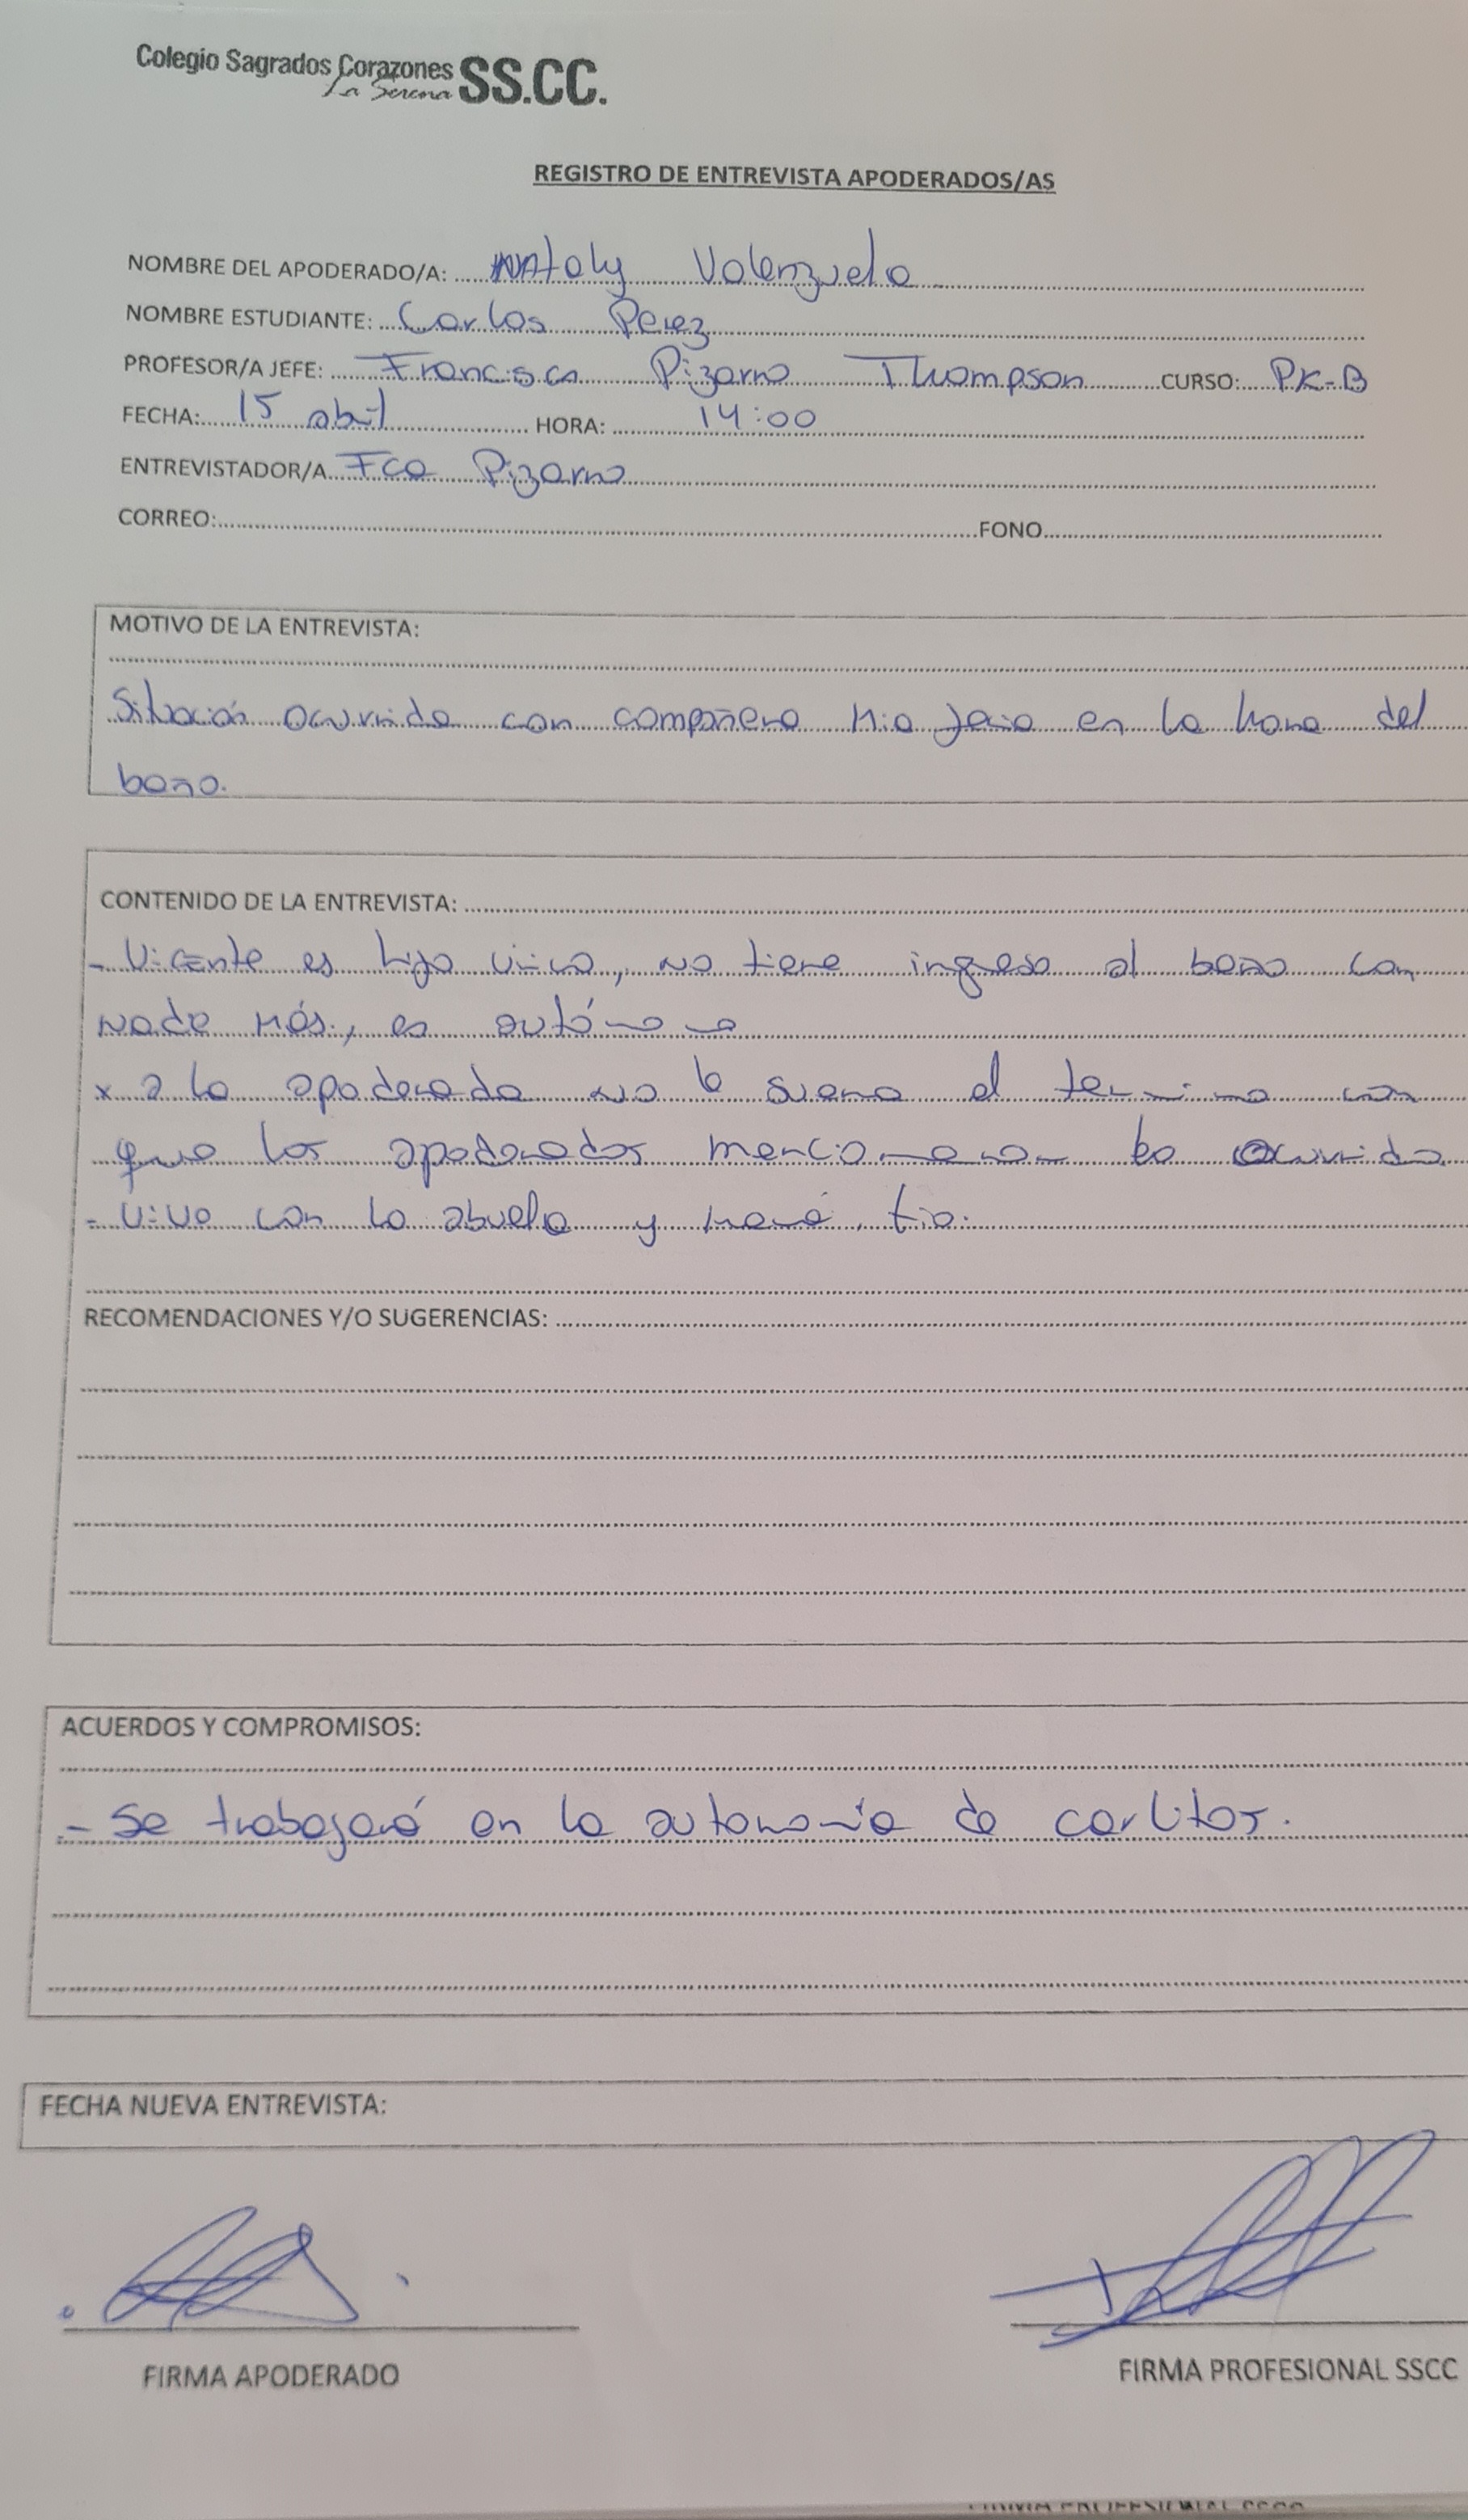 Colegio Sagrados Corazones SS.CC.
La Serena
REGISTRO DE ENTREVISTA APODERADOS/AS
NOMBRE DEL APODERADO/A: Nataly Valenzuela
NOMBRE ESTUDIANTE: Carlos Perez
PROFESOR/A JEFE: Francisca Pizarro Thompson CURSO: PK-B
FECHA: 15 abril HORA: 14:00
ENTREVISTADOR/A Fca Pizarro
CORREO: FONO
MOTIVO DE LA ENTREVISTA:
Situación ocurrida con compañera Mia en la hora del
baño.
CONTENIDO DE LA ENTREVISTA:
- Vicente es hijo único, no tiene ingreso al baño con
nade más, es autónomo
x a la apoderada no le suena el termino con
que los apoderados mencionaron lo ocurrido
- Vive con la abuela y mamá, tia.
RECOMENDACIONES Y/O SUGERENCIAS:
ACUERDOS Y COMPROMISOS:
- Se trabajará en la autonomía de carlitos.
FECHA NUEVA ENTREVISTA:
FIRMA APODERADO
FIRMA PROFESIONAL SSCC